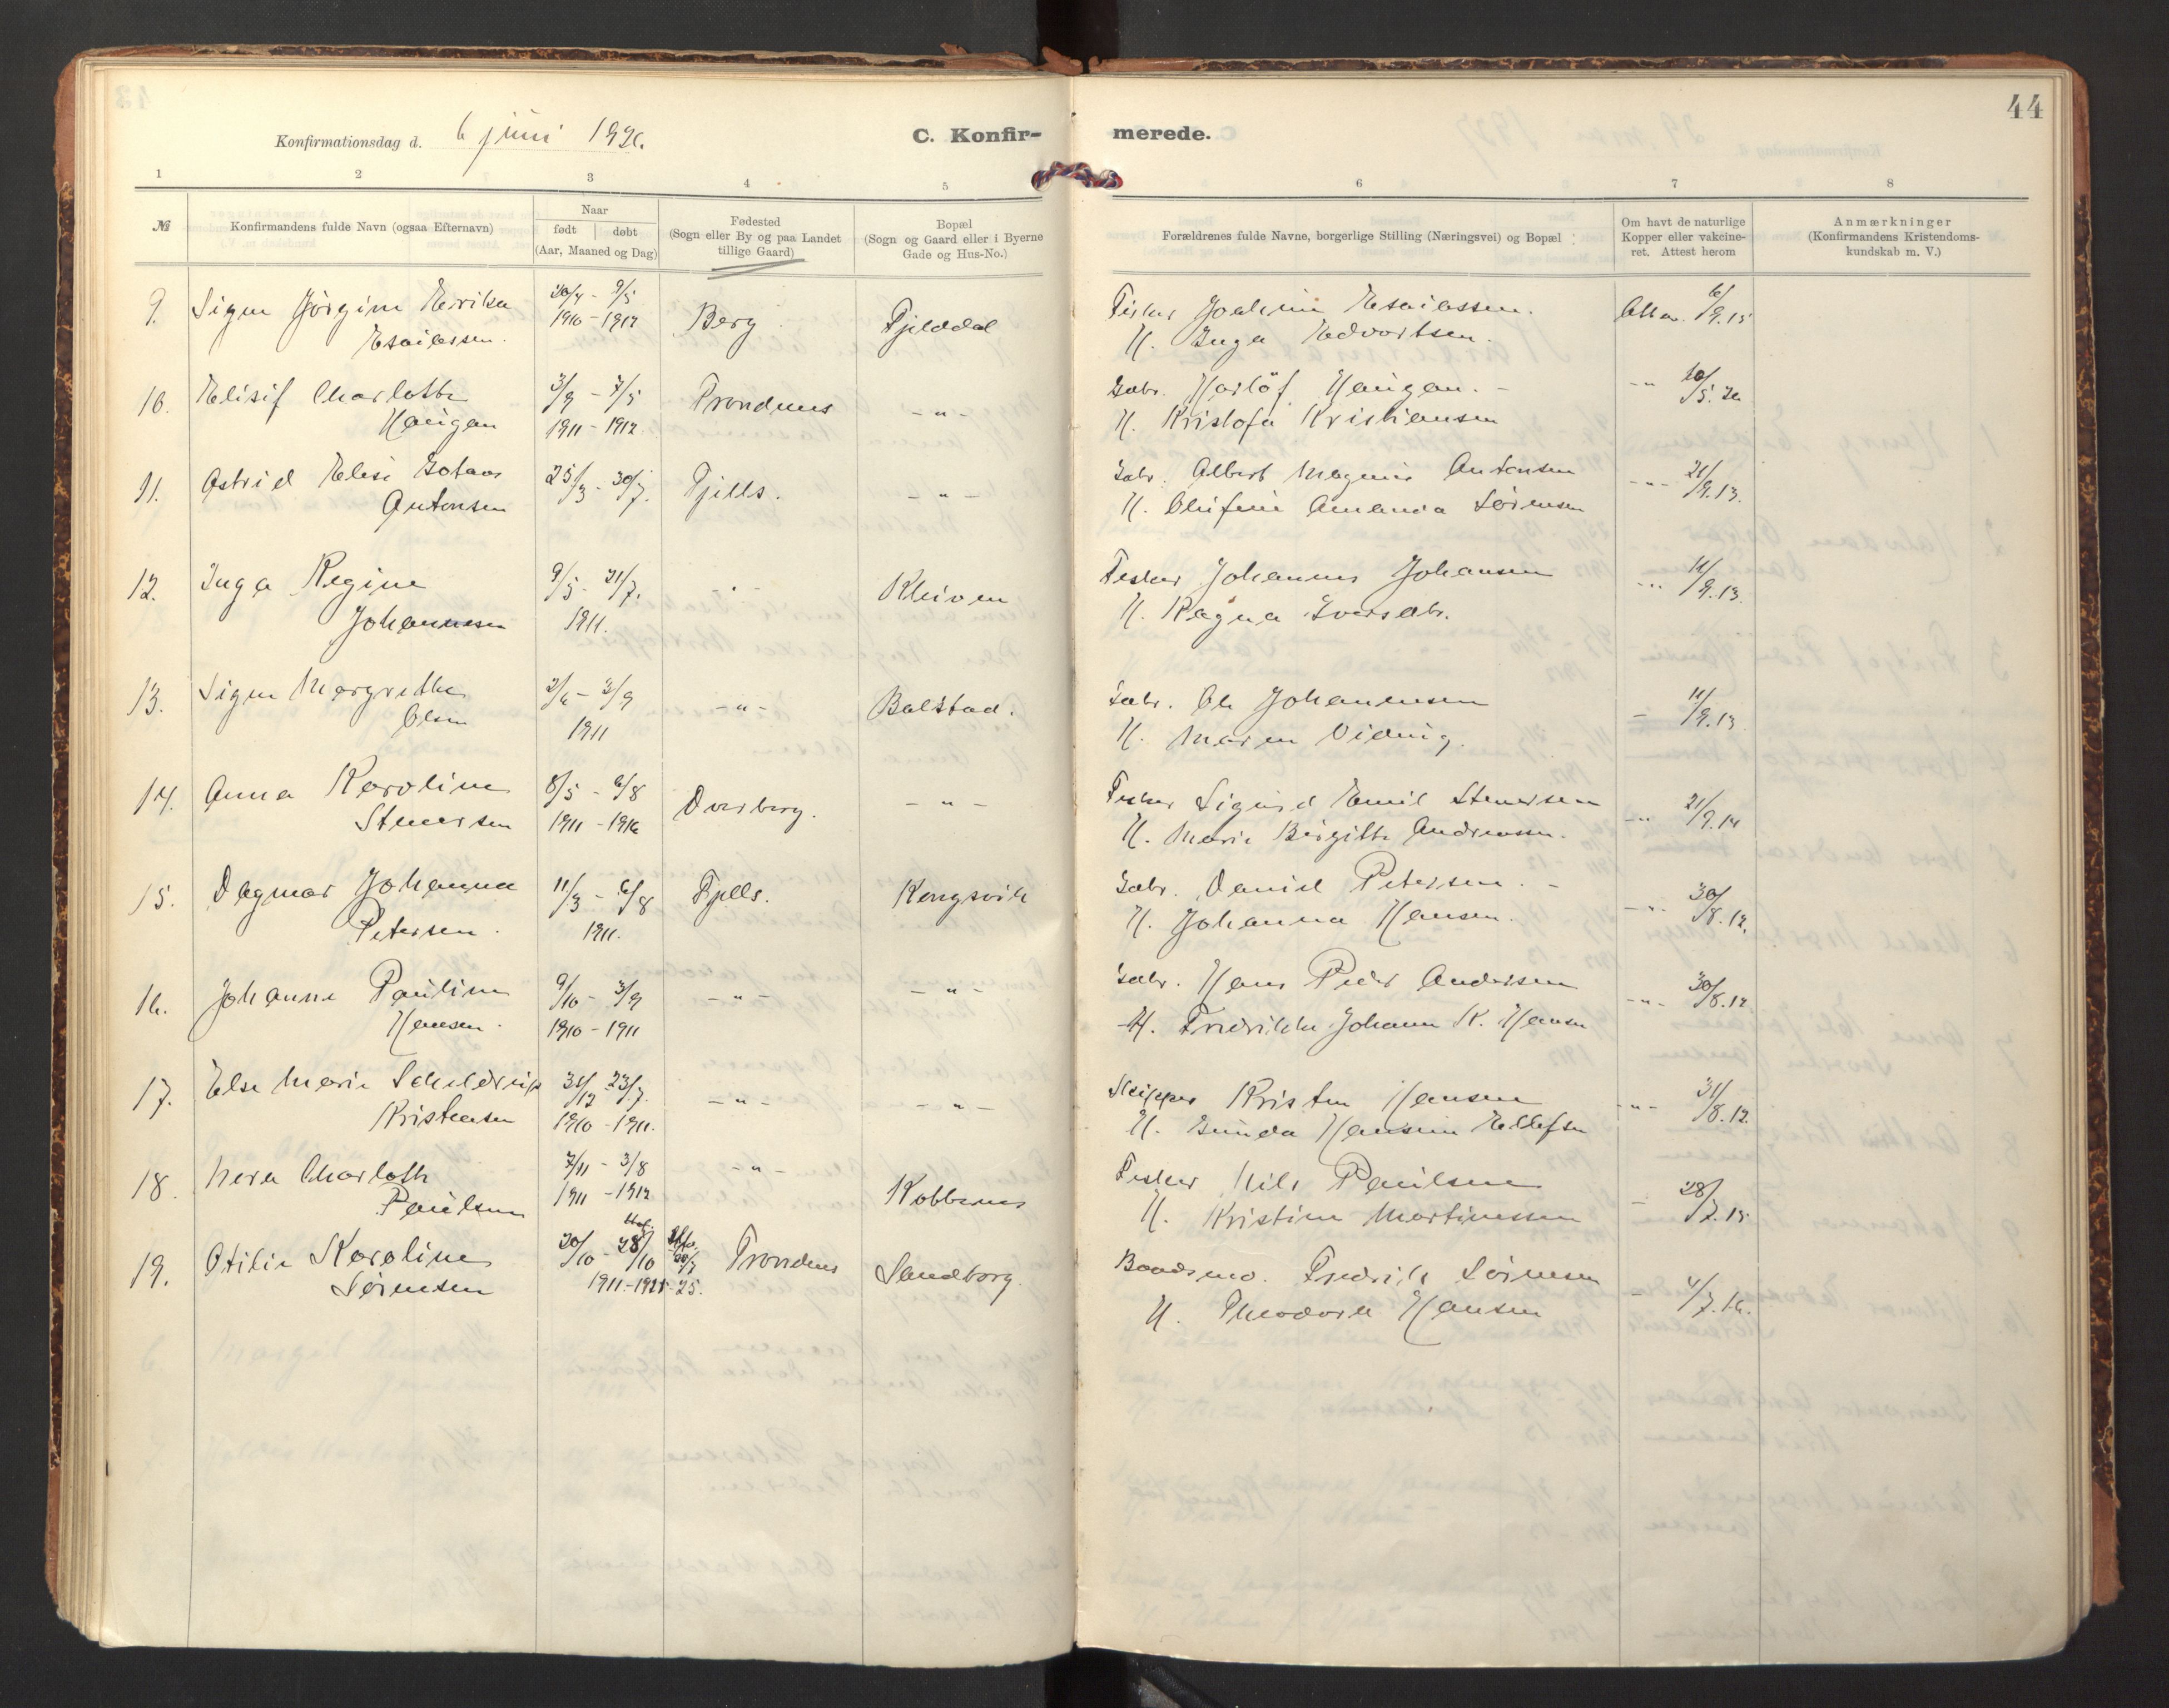 44
Konfirmationsdag d. 6 juni 1926.
C. Konfir- merede.
1 2 3 4 5 6 7 8
№
Konfirmandens fulde Navn (ogsaa Efternavn)
Naar
født | døbt
(Aar, Maaned og Dag)
Fødested
(Sogn eller By og paa Landet
tillige Gaard)
Bopæl
(Sogn og Gaard eller i Byerne
Gade og Hus-No.)
Forældrenes fulde Navne, borgerlige Stilling (Næringsvei) og Bopæl
Om havt de naturlige
Kopper eller vakcine-
ret. Attest herom
Anmærkninger
(Konfirmandens Kristendoms-
kundskab m. V.)
9. Signe Jørgine Erika 20/4 - 9/5 Berg Fjelddal Fisker Joakim Esaiassen. 6/9.15
Esaiassen. 1910 - 1912 H. Inga Edvartsen.
10. Elisif Charlotte 3/9 - 7/5 Trondenes - " - Gabr. Harlöf Haugan. - " 20/5.20
Haugan 1911 - 1912. H. Kristofa Kristiansen
11. Astrid Elise 25/3 - 30/7. Fjells. - " - Gabr. Albert Magnus Antonsen - " - 21/9.13.
Antonsen H. Olufine Amanda Sørensen
12. Inga Regine 9/5 - 21/7. - " - Kleiven Fisker Johannes Johansen - " - 11/9.13.
Johannesen 1911. H. Ragna Iversdtr.
13. Signe Margrethe 2/6 - 3/9 - " - Balstad. Gabr. Ole Johannesen - 11/9.13.
Olsen 1911 H. Maren Vidnig.
14. Anna Karoline 8/5 - 6/8 Dverberg. - " - Fisker Sigurd Emil Stenersen - " 21/9.14
Stenersen 1911 - H. Marie Birgitte Andreassen.
15. Dagmar Johanna 11/3 - 6/8 Fjells. Kongsvik Gabr. Daniel Petersen. - - " - 30/8.12.
Petersen. 1911. H. Johanna Hansen.
16. Johanne Pauline 9/10 - 3/9 - " - - " - Gabr. Hans Peder Andersen - " - 30/8.12.
Hansen. 1910 - 1911 H. Fredrikke Johanne K. Hansen
17. Else Marie Scheldrup 31/12 - 23/7. - " - - " - Skipper Kristen Hansen - " - 31/8.12.
Kristensen 1910 - 1911. H. Gunda Hansine Ellefsen
18. Nera Charloth 7/11 - 3/8 - " - Kobbenes Fisker Nils Paulsen - 28/7.15
Paulsen 1911 - 1912 H. Kristine Martinessen
19. Otilie Karoline 20/10 - 28/10 Trondenes Sandborg. Baadsmd. Fredrik Sørensen - 4/7.16.
Sørensen 1911. - 25. H. Theodora Hansen